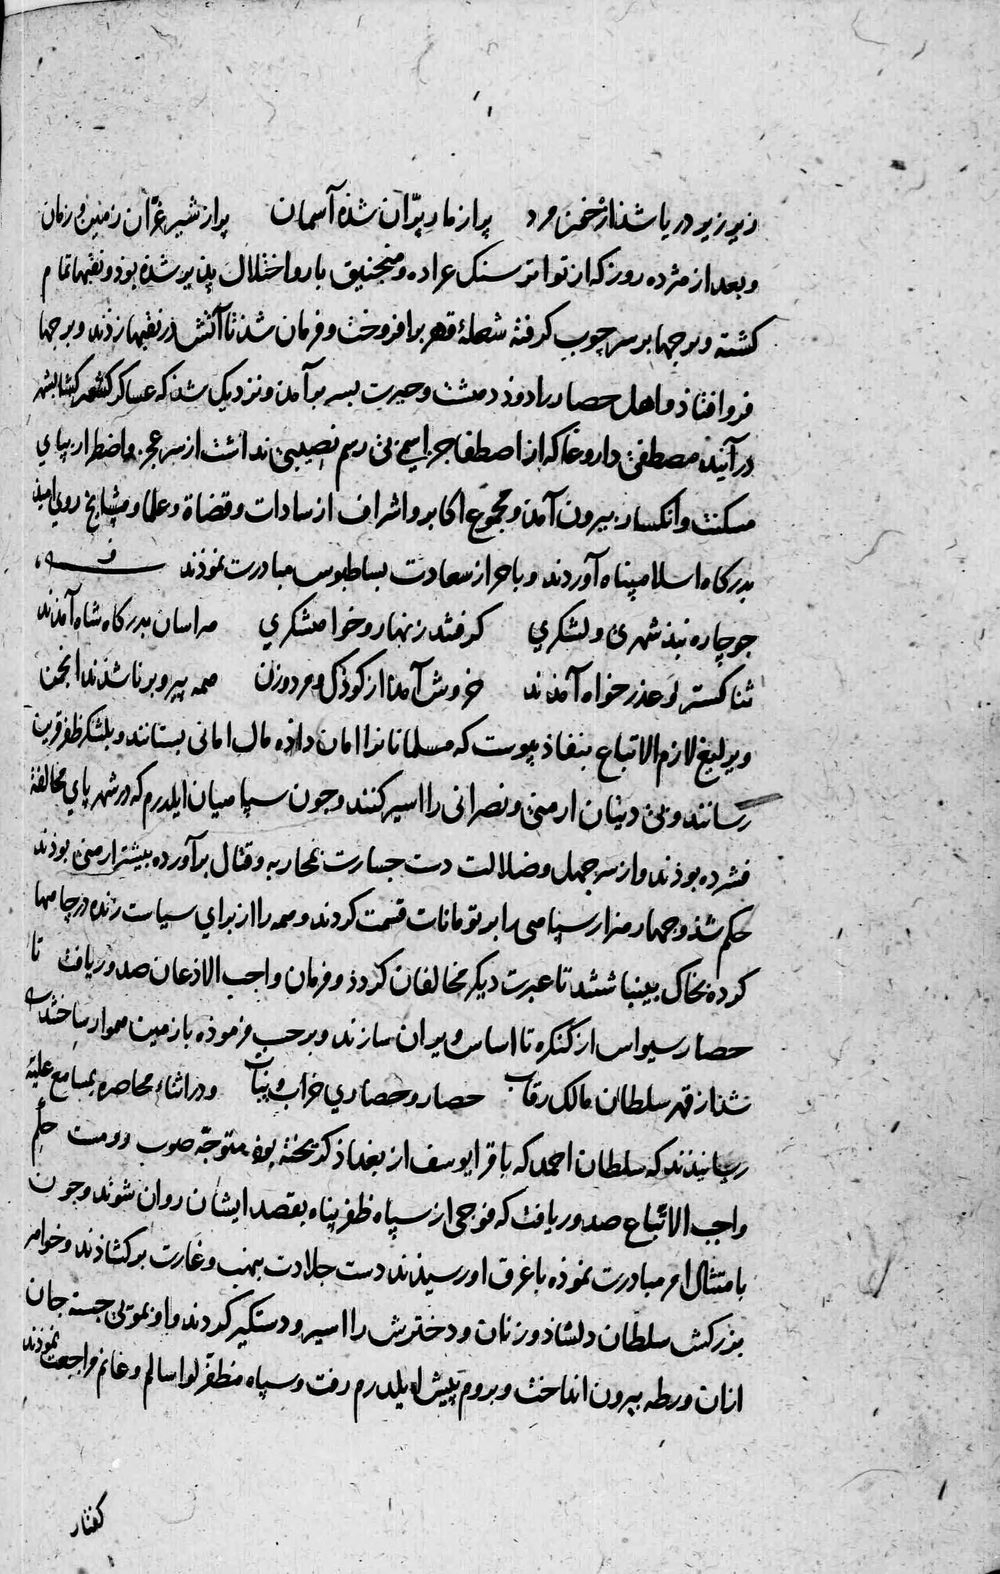 زیر زیر دریا شد از خون مرد پر از مار پرّان شده آسمان پر از شیر غرّان زمین و زمان
و بعد از هژده روز که از تواتر سنک عراده و منجنیق بارو اختلال پذیر شده بود و نقبها تمام
کشته و برجها بر سر چوب کرفته شعلهٔ قهر برافروخت و فرمان شد تا آتش در نقبها زدند و برجها
فرو افتاد و اهل حصار را دود دهشت و حیرت بسر برآمد و نزدیک شد که عساکر کشورکشا بشهر
درآیند مصطفی داروغا که از اصطفا جز اسمی نی رسم نصیبی نداشت از سر عجز و اضطرار بپای
مسکنت و انکسار بیرون آمد و مجموع اکابر و اشراف از سادات و قضاة و علما و مشایخ روی امید
بدرکاه اسلام پناه آوردند و باحراز سعادت بساط بوس مبادرت نمودند
چو چاره نبد شهری و لشکری کرفتند زنهار و خواهشکری هراسان بدرکاه شاه آمدند
ثنا کستر و عذر خواه آمدند خروش آمد از کودک و مرد و زن همه پیر و برنا شدند انجمن
و یرلیغ لازم الاتباع بنفاذ پیوست که مسلمانانرا امان داده مال امانی بستانند و بلشکر ظفر قرین
رسانند و بی دینان ارمنی و نصرانی را اسیر کنند و چون سپاهیان ایلدرم که در شهر پای مخالفة
فشرده بودند و از سر جهل و ضلالت دست جسارت بمحاربه و قتال برآورده بیشتر ارمنی بودند
حکم شد و چهار هزار سپاهی را بر تومانات قسمت کردند و همه را از برای سیاست زنده در چاهها
کرده بخاک بینباشتند تا عبرت دیکر مخالفان کردد و فرمان واجب الاذعان صدور یافت تا
حصار سیواس از کنکره تا اساس ویران سازند و بر حسب فرموده با زمین هموار ساختند
شد از قهر سلطان مالک رقاب حصار و حصاری خراب و یباب و در اثناء محاصره بمسامع علیّه
رسانیدند که سلطان احمد که با قرا یوسف از بغداد کریخته بود متوجّه صوب روم است حکم
واجب الاتّباع صدور یافت که فوجی از سپاه ظفر پناه بقصد ایشان روان شوند و چون
بامتثال امر مبادرت نموده باغرق او رسیدند دست جلادت بنهب و غارت برکشادند و خواهر
بزرکش سلطان دلشاد و زنان و دخترش را اسیر و دستکیر کردند و او بموئی جسته جان
ازان ورطه بیرون انداخت و بروم پیش ایلدرم رفت و سپاه مظفّر لوا سالم و غانم مراجعت نمودند
کفتار